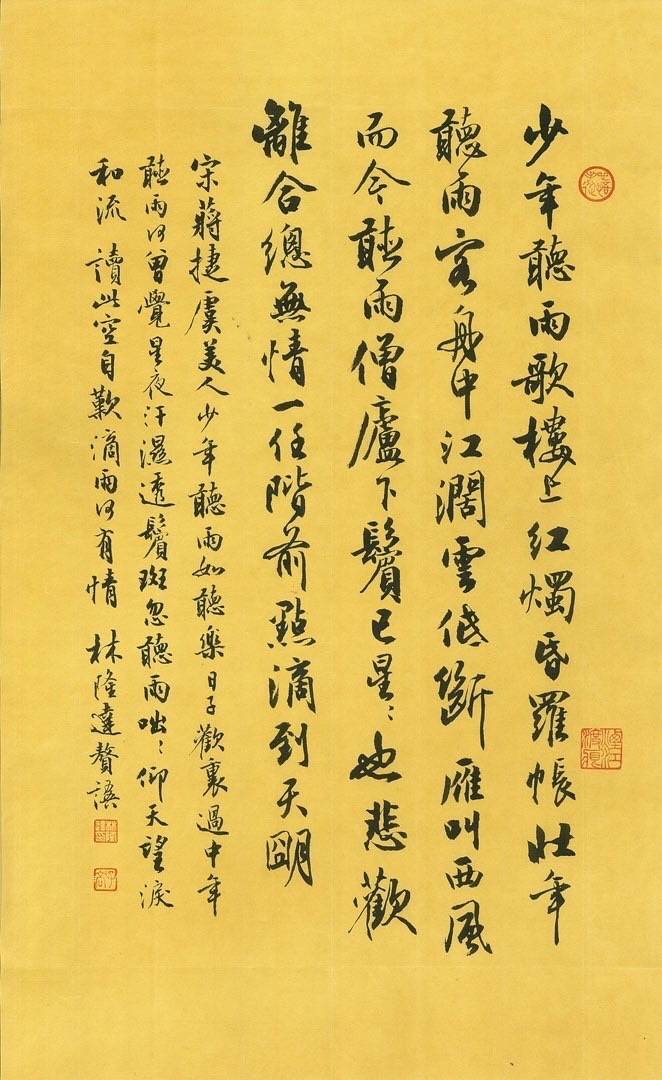 少年聽雨歌樓上紅燭昏羅帳壯年
聽雨客舟中江闊雲低斷雁叫西風
而今聽雨僧廬下鬢已星〻也悲歡
離合總無情一任階前點滴到天朙
宋蔣捷虞美人少年聽雨如聽樂日子歡裏過中年
聽雨何曾覺星夜汗濕透鬢斑忽聽雨咄〻仰天望淚
和流讀此空自歎滴雨何有情 林隆達贅語